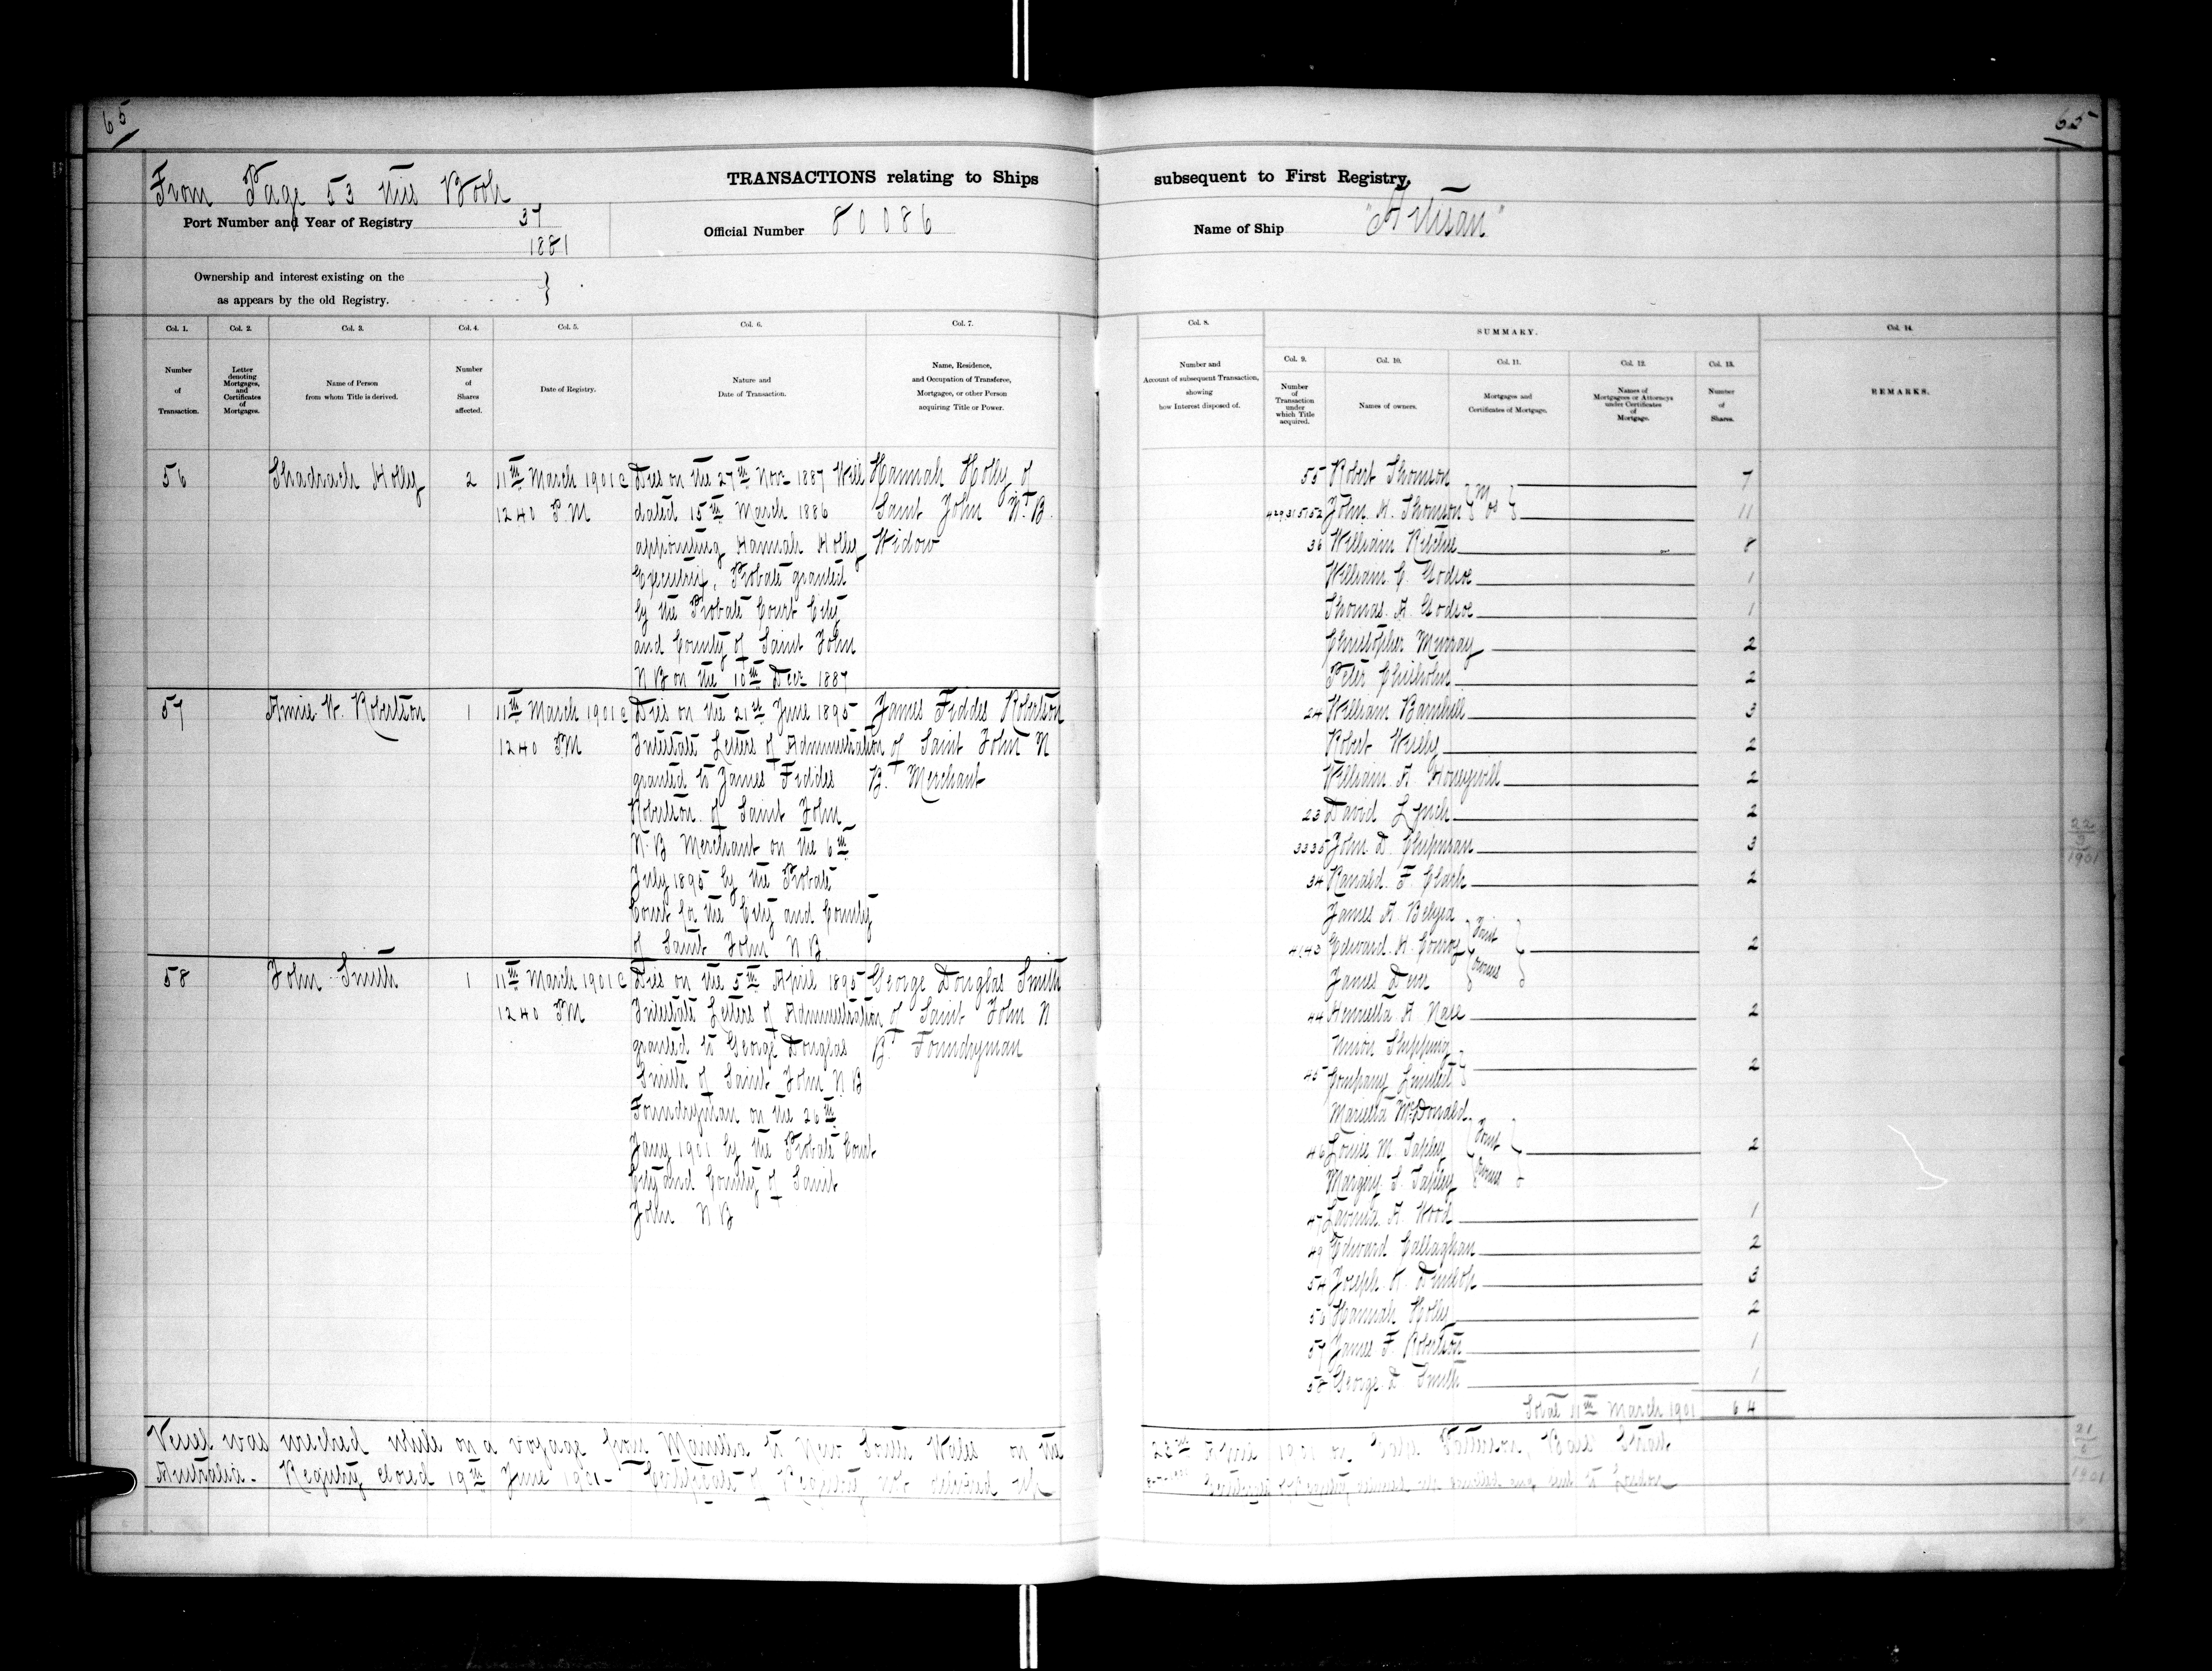 65
65
From Page 53 this Book
TRANSACTIONS relating to Ships subsequent to First Registry.
Port Number and Year of Registry 37
1881
Official Number 80086
Name of Ship "Artisan"
Ownership and interest existing on the
as appears by the old Registry.
Col. 1. Col. 2. Col. 3. Col. 4. Col. 5. Col. 6. Col. 7.
Number of Transaction.
Letter denoting Mortgages, and Certificates of Mortgages.
Name of Person from whom Title is derived.
Number of Shares affected.
Date of Registry.
Nature and Date of Transaction.
Name, Residence, and Occupation of Transferee, Mortgagee, or other Person acquiring Title or Power.
56 Shadrach Holly 2 11th March 1901 Dies on the 27th Novr 1887 Will Hannah Holly of
12 40 P.M dated 15th March 1886 Saint John N.B.
appointing Hannah Holly Widow
Executrix, Probate granted
by the Probate Court City
and County of Saint John
N B on the 10th Decr 1887
57 Annie W. Robertson 1 11th March 1901 Dies on the 21st June 1895 James Fiddes Robertson
12 40 PM Intestate Letters of Administration of Saint John N
granted to James Fiddes B. Merchant
Robertson of Saint John
N.B Merchant on the 6th
July 1895 by the Probate
Court for the City and County
of Saint John N B.
58 John Smith 1 11th March 1901 Dies on the 5th April 1895 George Douglas Smith
12 40 PM Intestate Letters of Administration of Saint John N
granted to George Douglas B. Foundryman
Smith of Saint John N B
Foundryman on the 26th
Jany 1901 by the Probate Court
City and County of Saint
John N B
Col. 8. SUMMARY. Col. 14.
Col. 9. Col. 10. Col. 11. Col. 12. Col. 13.
Number and Account of subsequent Transaction, showing how Interest disposed of.
Number of Transaction under which Title acquired.
Names of owners.
Mortgages and Certificates of Mortgage.
Names of Mortgagees or Attorneys under Certificates of Mortgage.
Number of Shares.
REMARKS.
55 Robert Thomson 7
John H. Thomson 11
36 William Ritchie 8
William C. Godsoe 1
Thomas A. Godsoe 1
Christopher Murray 2
Peter Chisholm 2
24 William Barnhill 3
Robert Wisely 2
William A. Honeywill 2
23 David Lynch 2
33 35 John D. Chipman 3
34 Ranald F. Clark 2
James A. Belyea
41 43 Edward H. Conroy Joint owners 2
James Dever
44 Henrietta A. Nase 2
Union Shipping
45 Company Limited 2
Marietta McDonald
46 Louise M. Tapley Joint Owners 2
Margery S. Tapley
47 Lavinia A. Wood 1
49 Edward Callaghan 2
54 Joseph K. Dunlop 3
56 Hannah Holly 2
57 James F. Robertson 1
58 George D. Smith 1
Total 11th March 1901 64
22
3
1901
Vessel was wrecked while on a voyage from Manilla to New South Wales on the 23rd April 1901 on Cape Patterson, Bass Strait
Australia. Registry closed 19th June 1901
21
6
1901